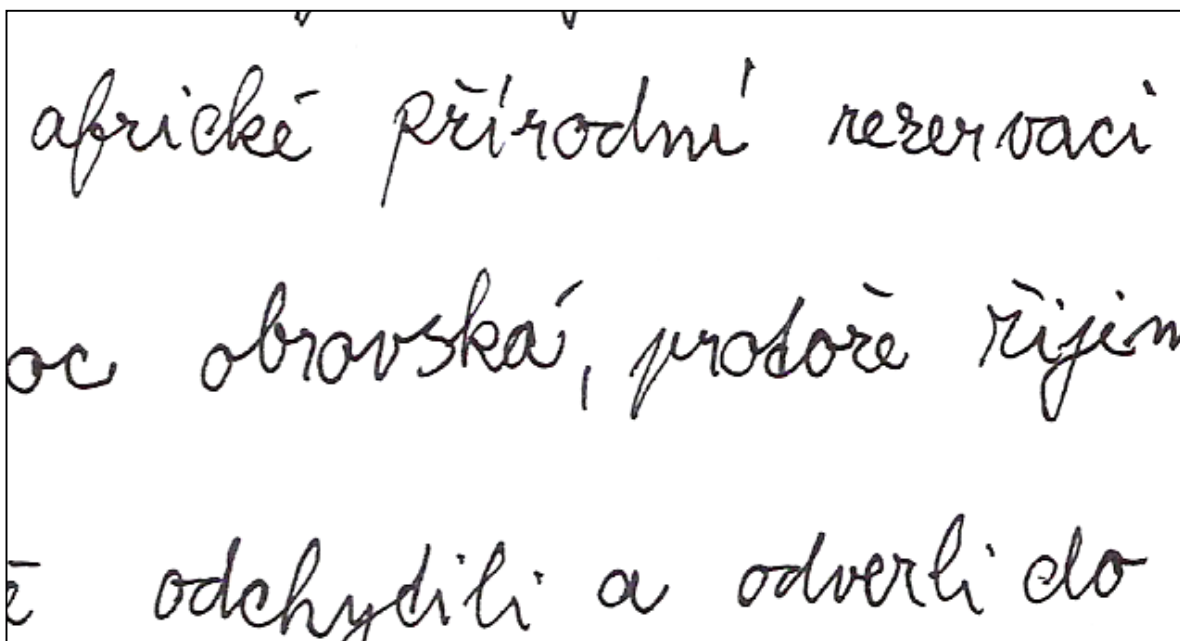 africké přírodní rezervaci
oc obrovská, protože žijem
odchytili a odvezli do